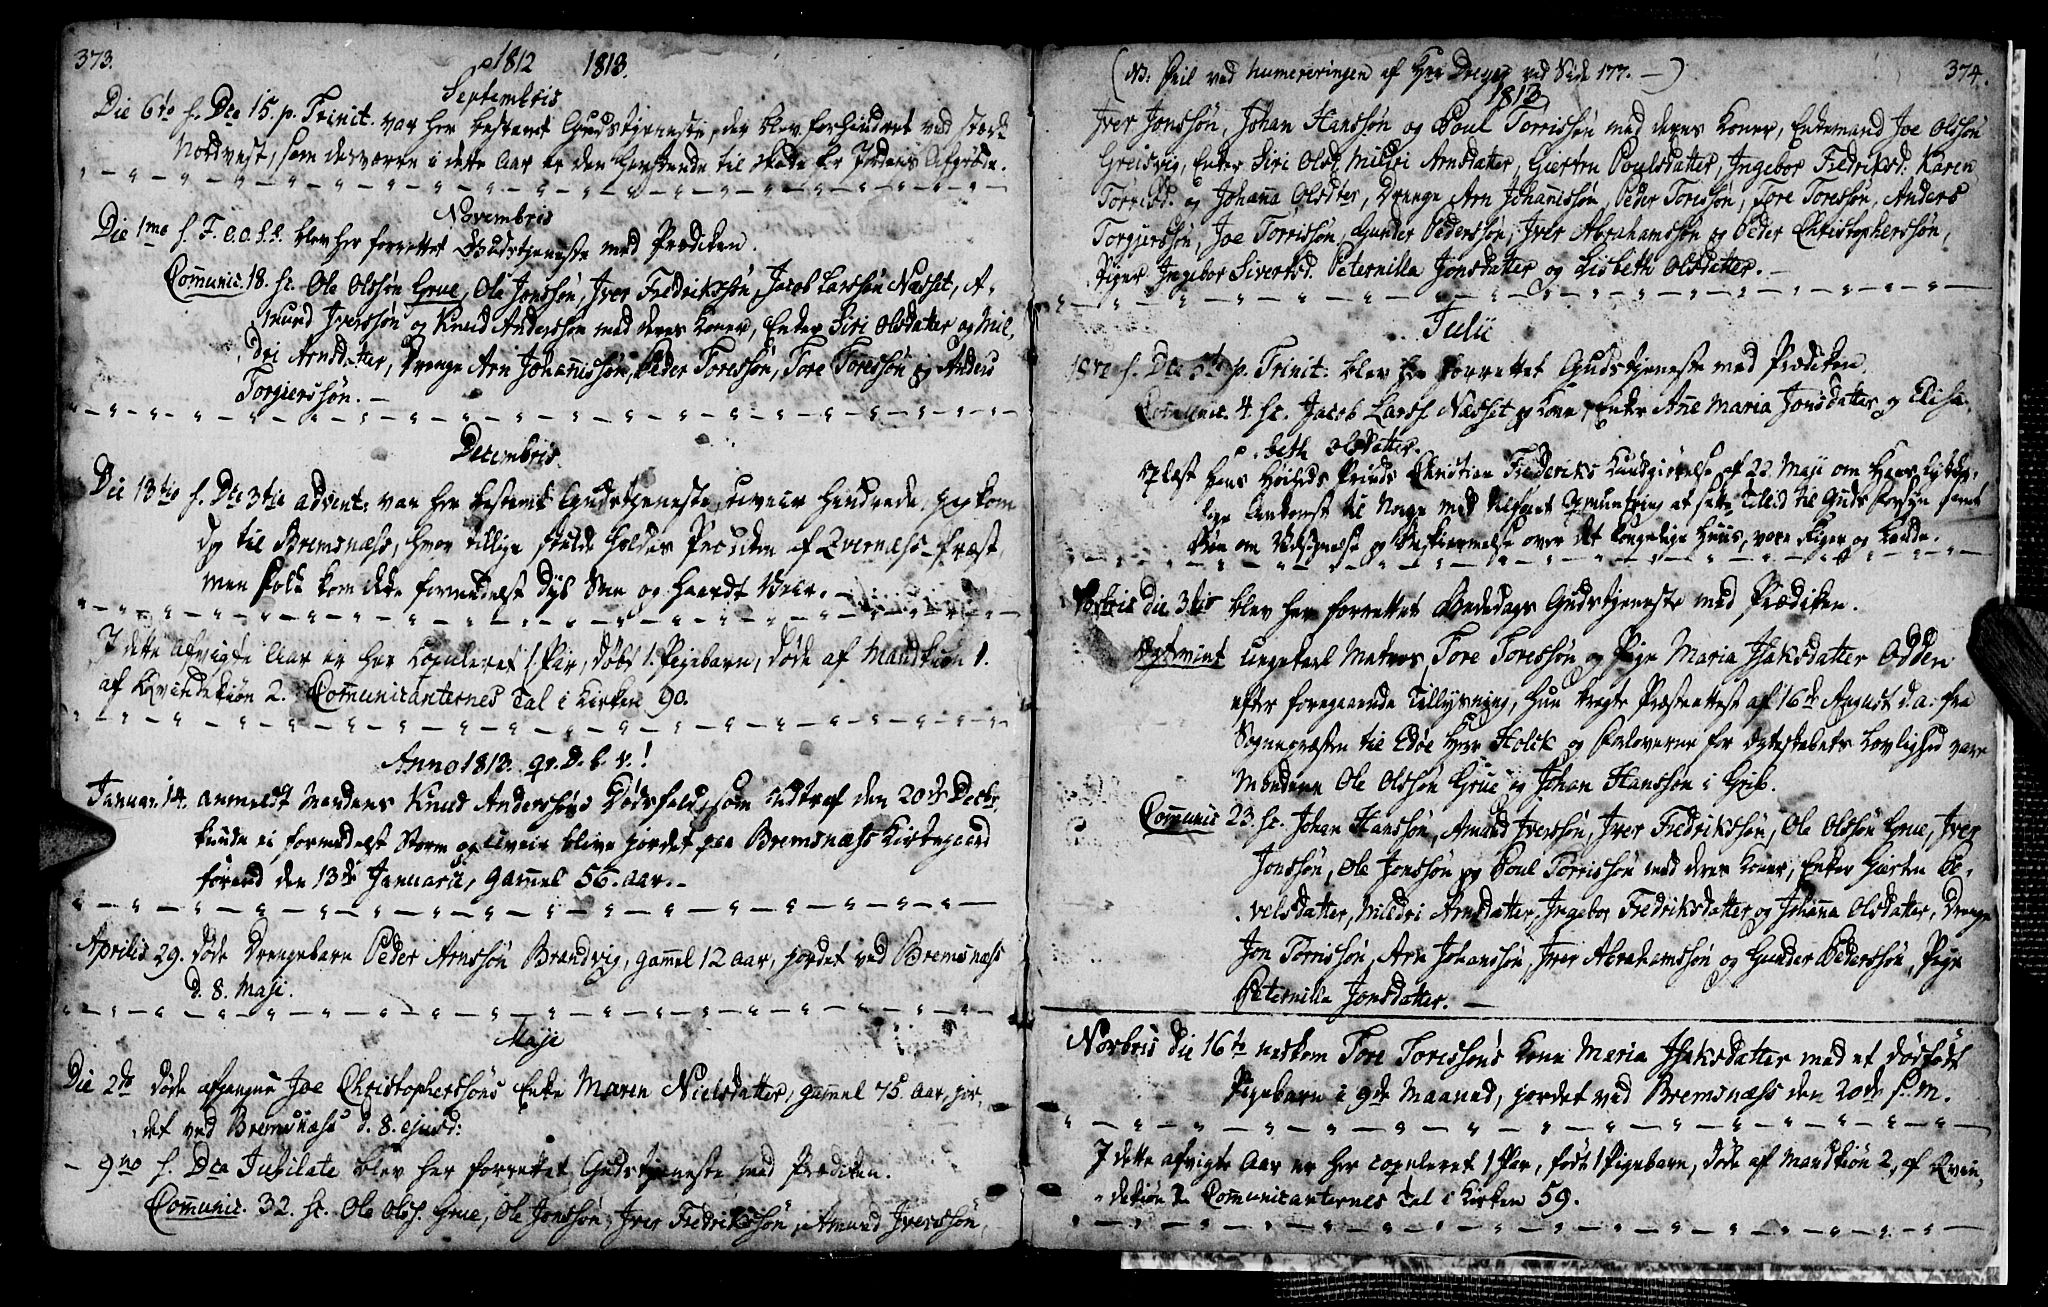 373.
1812 1813.
Septembris
Die 6to s. Dca 15. p. Trinit. var her bestemt Gudstjeneste, der blev forhindret ved stærk
Nordvest, som desværre i dette Aar er den herskende til skade for Jordens Afgrøde.
Novembris
Die 1mo s. F. o. o. s. s. blev her forrettet Gudstjeneste med Prædiken.
Communic. 18. sc. Ole Olssøn Grue, Ole Jonssøn, Iver Fredrikssøn, Jacob Larssøn Næsset, A-
mund Iverssøn og Knud Anderssøn med deres Koner, Enker Siri Olsdatter og Mil-
dri Arnsdatter, Drenge Arn Johannissøn, Peder Toressøn, Tore Toressøn og Anders
Torgierssøn.
Decembris
Die 13tio s. Dca 3tia Advent: var her bestemt Gudstjeneste, Uveir hindrede, jeg kom
dog til Bremsnæss, hvor tillige skulde holdes Prædiken af Qvernæss Præst,
men Folk kom ikke formedelst dyb Snee og haardt Veir.
I dette afvigte Aar er her Copuleret 1 Par, døbt 1. Pigebarn, døde af Mandkiøn 1.
af Kvindekiøn 2. Communicanternes Tal i Kirken 90.
Anno 1813. qv. D. b. v.!
Januar. 14. anmeldt Mandens Knud Anderssøns Dødsfald, som indtraf den 20de Decbr.
kunde ei formedelst Storm og Uveir blive jordet paa Bremsnæss Kirkegaard
førend den 13de Januarii, gammel 56. Aar.
Aprilis 29. døde Drengebarn Peder Arnssøn Brandvig, gammel 12 Aar, jordet ved Bremsnæss
d. 8. Maji.
Maji
Die 2do døde afgangne Joe Christopherssøns Enke Maren Nielsdatter, gammel 75. Aar, jor-
det ved Bremsnæss d. 8. ejusd:
- 9no s. Dca Jubilate blev her forrettet Gudstjeneste med Prædiken.
Communic. 32. sc. Ole Olss. Grue, Ole Jonssøn, Iver Fredrikssøn, Amund Iverssøn,
(NB: Feil ved Numereringen af Hr. Dreyer ved Side 177. —) 374.
1813
Iver Jonssøn, Johan Hanssøn og Poul Torrissøn med deres Koner, Enkemand Joe Olssøn
Greisvig, Enker Siri Olsd. Mildri Arnsdatter, Giertru Poulsdatter, Ingebor Fredriksd. Karen
Torrisd. og Johanna Olsdter, Drenge Arn Johannissøn, Peder Torissøn, Tore Toressøn, Anders
Torgierssøn, Joe Torrissøn, Gunder Pederssøn, Iver Abrahamssøn og Peder Christopherssøn,
Piger Ingebor Sivertsd. Peternilla Jonsdatter og Lisbeth Olsdatter.
Julii
18va s. Dca 5ta p. Trinit: blev her forrettet Gudstjeneste med Prædiken.
Communic. 4. sc. Jacob Larss. Næsset og Kone, Enke Anne Maria Jonsdatter og Elisa-
beth Olsdatter.
Oplæst Hans Høiheds Prinds Christian Frederiks Kundgiørelse af 22 Maji om Hans lykke-
lige Ankomst til Norge med tilføiet Opmuntring at sætte Tillid til Guds Forsyn samt
Bøn om Velsignelse og Beskiermelse over det kongelige Huus, vore Riger og Lande.
Novbris die 3tio blev her forrettet Bededags Gudstjeneste med Prædiken.
Egteviet ungekarl Matros, Tore Toressøn og Pige Maria Isaksdatter Odden
efter foregaaende Tillysning, hun bragte Præsteattest af 16de August d. a. fra
Sognepræsten til Edøe Herr Holck og Forloverne for Egteskabets Lovlighed vare
Mændene Ole Olssøn Grue og Johan Hanssøn i Grib.
Communic 23. sc. Johan Hanssøn, Amund Iverssøn, Iver Fredrikssøn, Ole Olssøn Grue, Iver
Jonssøn, Ole Jonssøn og Poul Torrissøn med deres Koner, Enker Gierten Po-
velsdatter, Mildri Arnsdatter, Ingebor Fredriksdatter og Johanna Olsdatter, Drenge
Jon Torrissøn, Arn Johanssøn, Iver Abrahamssøn og Gunder Pederssøn, Pige
Peternilla Jonsdatter.
Novbris die 16to nedkom Tore Toressøns Kone Maria Isaksdatter med et dødfødt
Pigebarn i 9de Maaned, jordet ved Bremsnæss den 20de s. m.
I dette afvigte Aar er her copuleret 1 Par, født 1 Pigebarn, døde af Mandkiøn 2, af Qvin-
dekiøn 2. Communicanternes Tal i Kirken 59.